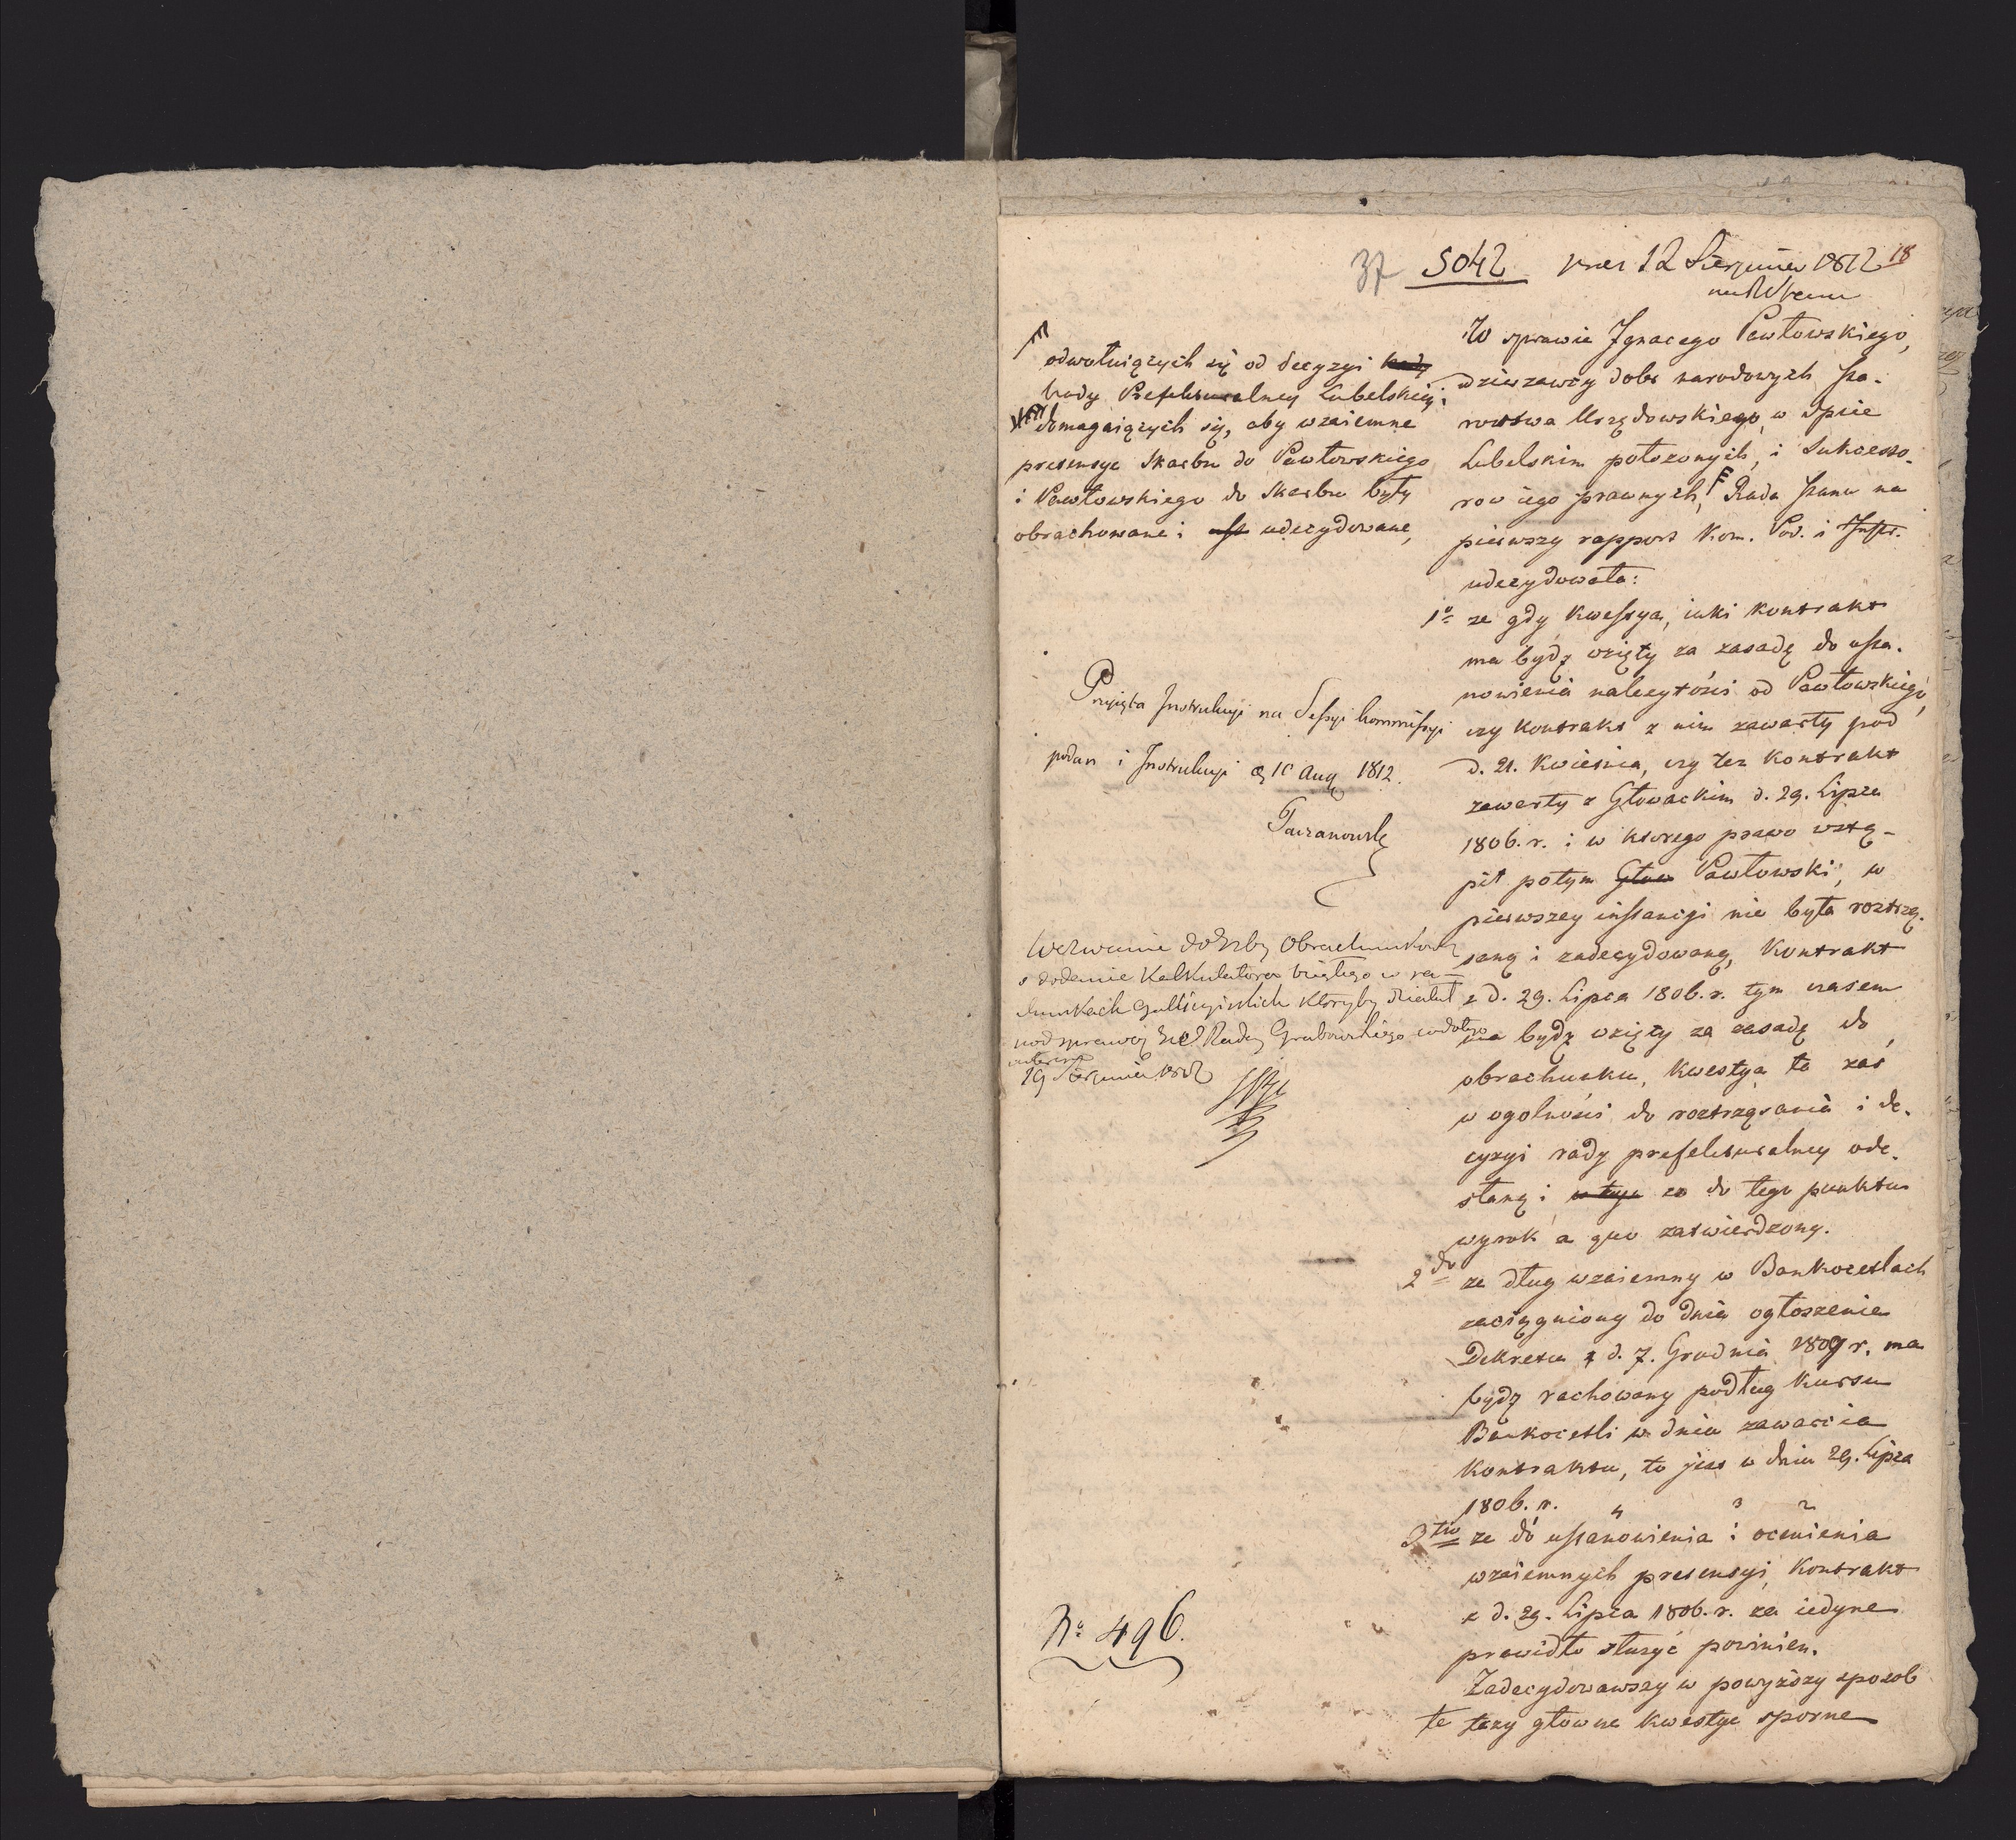 37 5042 12 Sierpnia 1812 18
odwołuiących się od decyzyi
Rady Prefekturalney Lubelskiey i
domagaiących się, aby wzaiemne
pretensye Skarbu do Pawłowskiego
i Pawłowskiego do Skarbu były
obrachowane i udecydowane,
Przyięta Instrukcyi na Sessyi Kommissyi
podan i Instrukcyi 10 Aug 1812.
Wezwanie do Izby Obrachunkow
o dodanie Kalkulatora biegłego w ra-
chunkach Gallicyiskich ktoryby działał
pod sprawą Rady Grabowskiego
19 Sierpnia 1812
No 496.
W sprawie Ignacego Pawłowskiego,
dzierzawcy dobr narodowych sta-
rostwa Urzędowskiego, w dpcie
Lubelskim położonych, i Sukcesso-
row iego prawnych, Rada stanu na
pierwszy rapport Kom. Pod. i Instr.
udecydowała:
1o ze gdy kwestya, iaki kontrakt
ma bydź wzięty za zasadę do usta-
nowienia należytości od Pawłowskiego,
czy kontrakt z nim zawarty pod
d. 21. Kwietnia, czy tez kontrakt
zawarty z Głowackim d. 29. Lipca
1806. r. i w ktorego prawo wstą-
pił potym Głow Pawłowski, w
pierwszey instancyi nie była roztrzą-
saną i zadecydowaną, kontrakt
z d. 29. Lipca 1806. r. tym czasem
ma bydź wzięty za zasadę do
obrachunku, kwestya ta zaś
w ogolności do roztrząsania i de-
cyzyi rady prefekturalney ode-
słaną i w tym co do tego punktu
wyrok a quo zatwierdzony.
2do ze dług wzaiemny w Bankocetlach
zaciągniony do dnia ogłoszenia
Dekretu z d. 7. Grudnia 1809 r. ma
bydź rachowany podług kursu
Bankocetli w dniu zawarcia
kontraktu, to jest w dniu 29. Lipca
1806. r. 4 3 2
3tio ze do ustanowienia i ocenienia
wzaiemnych pretensyi, kontrakt
z d. 29. Lipca 1806. r. za iedyne
prawidło służyć powinien.
Zadecydowawszy w powyższy sposob
te trzy głowne kwestye sporne